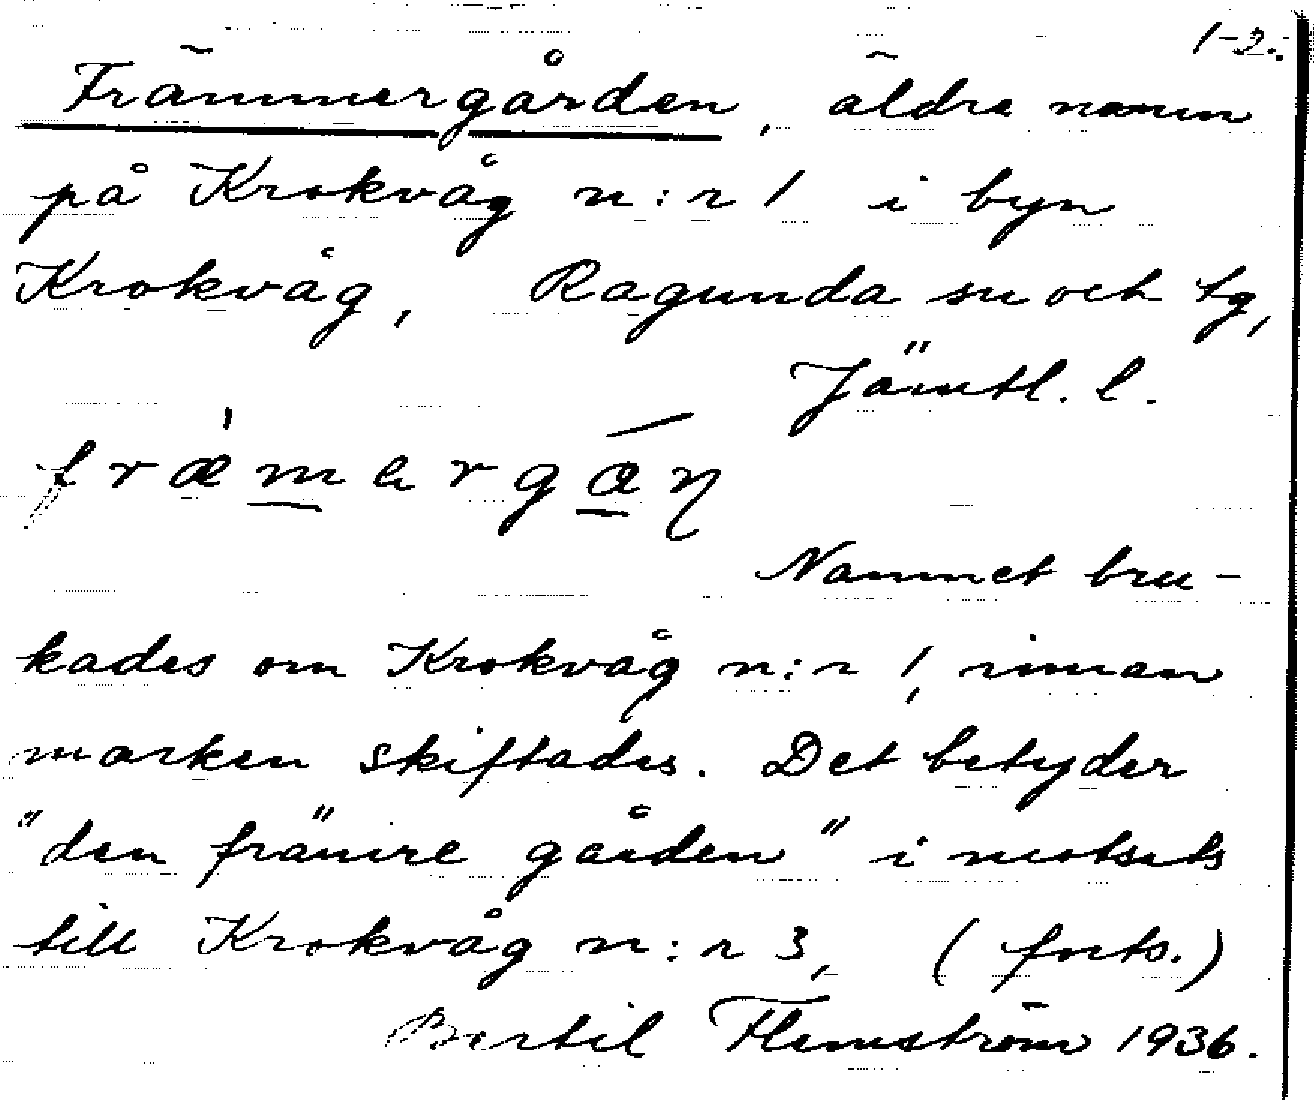 1-2.
Främmergården, äldre namn
på Krokvåg n:r 1 i byn
Krokvåg, Ragunda sn och tg,
Jämtl. l.
Namnet bru-
kades om Krokvåg n:r 1, innan
marken skiftades. Det betyder
"den främre gården" i motsats
till Krokvåg n:r 3, (forts.)
Bertil Flemström 1936.